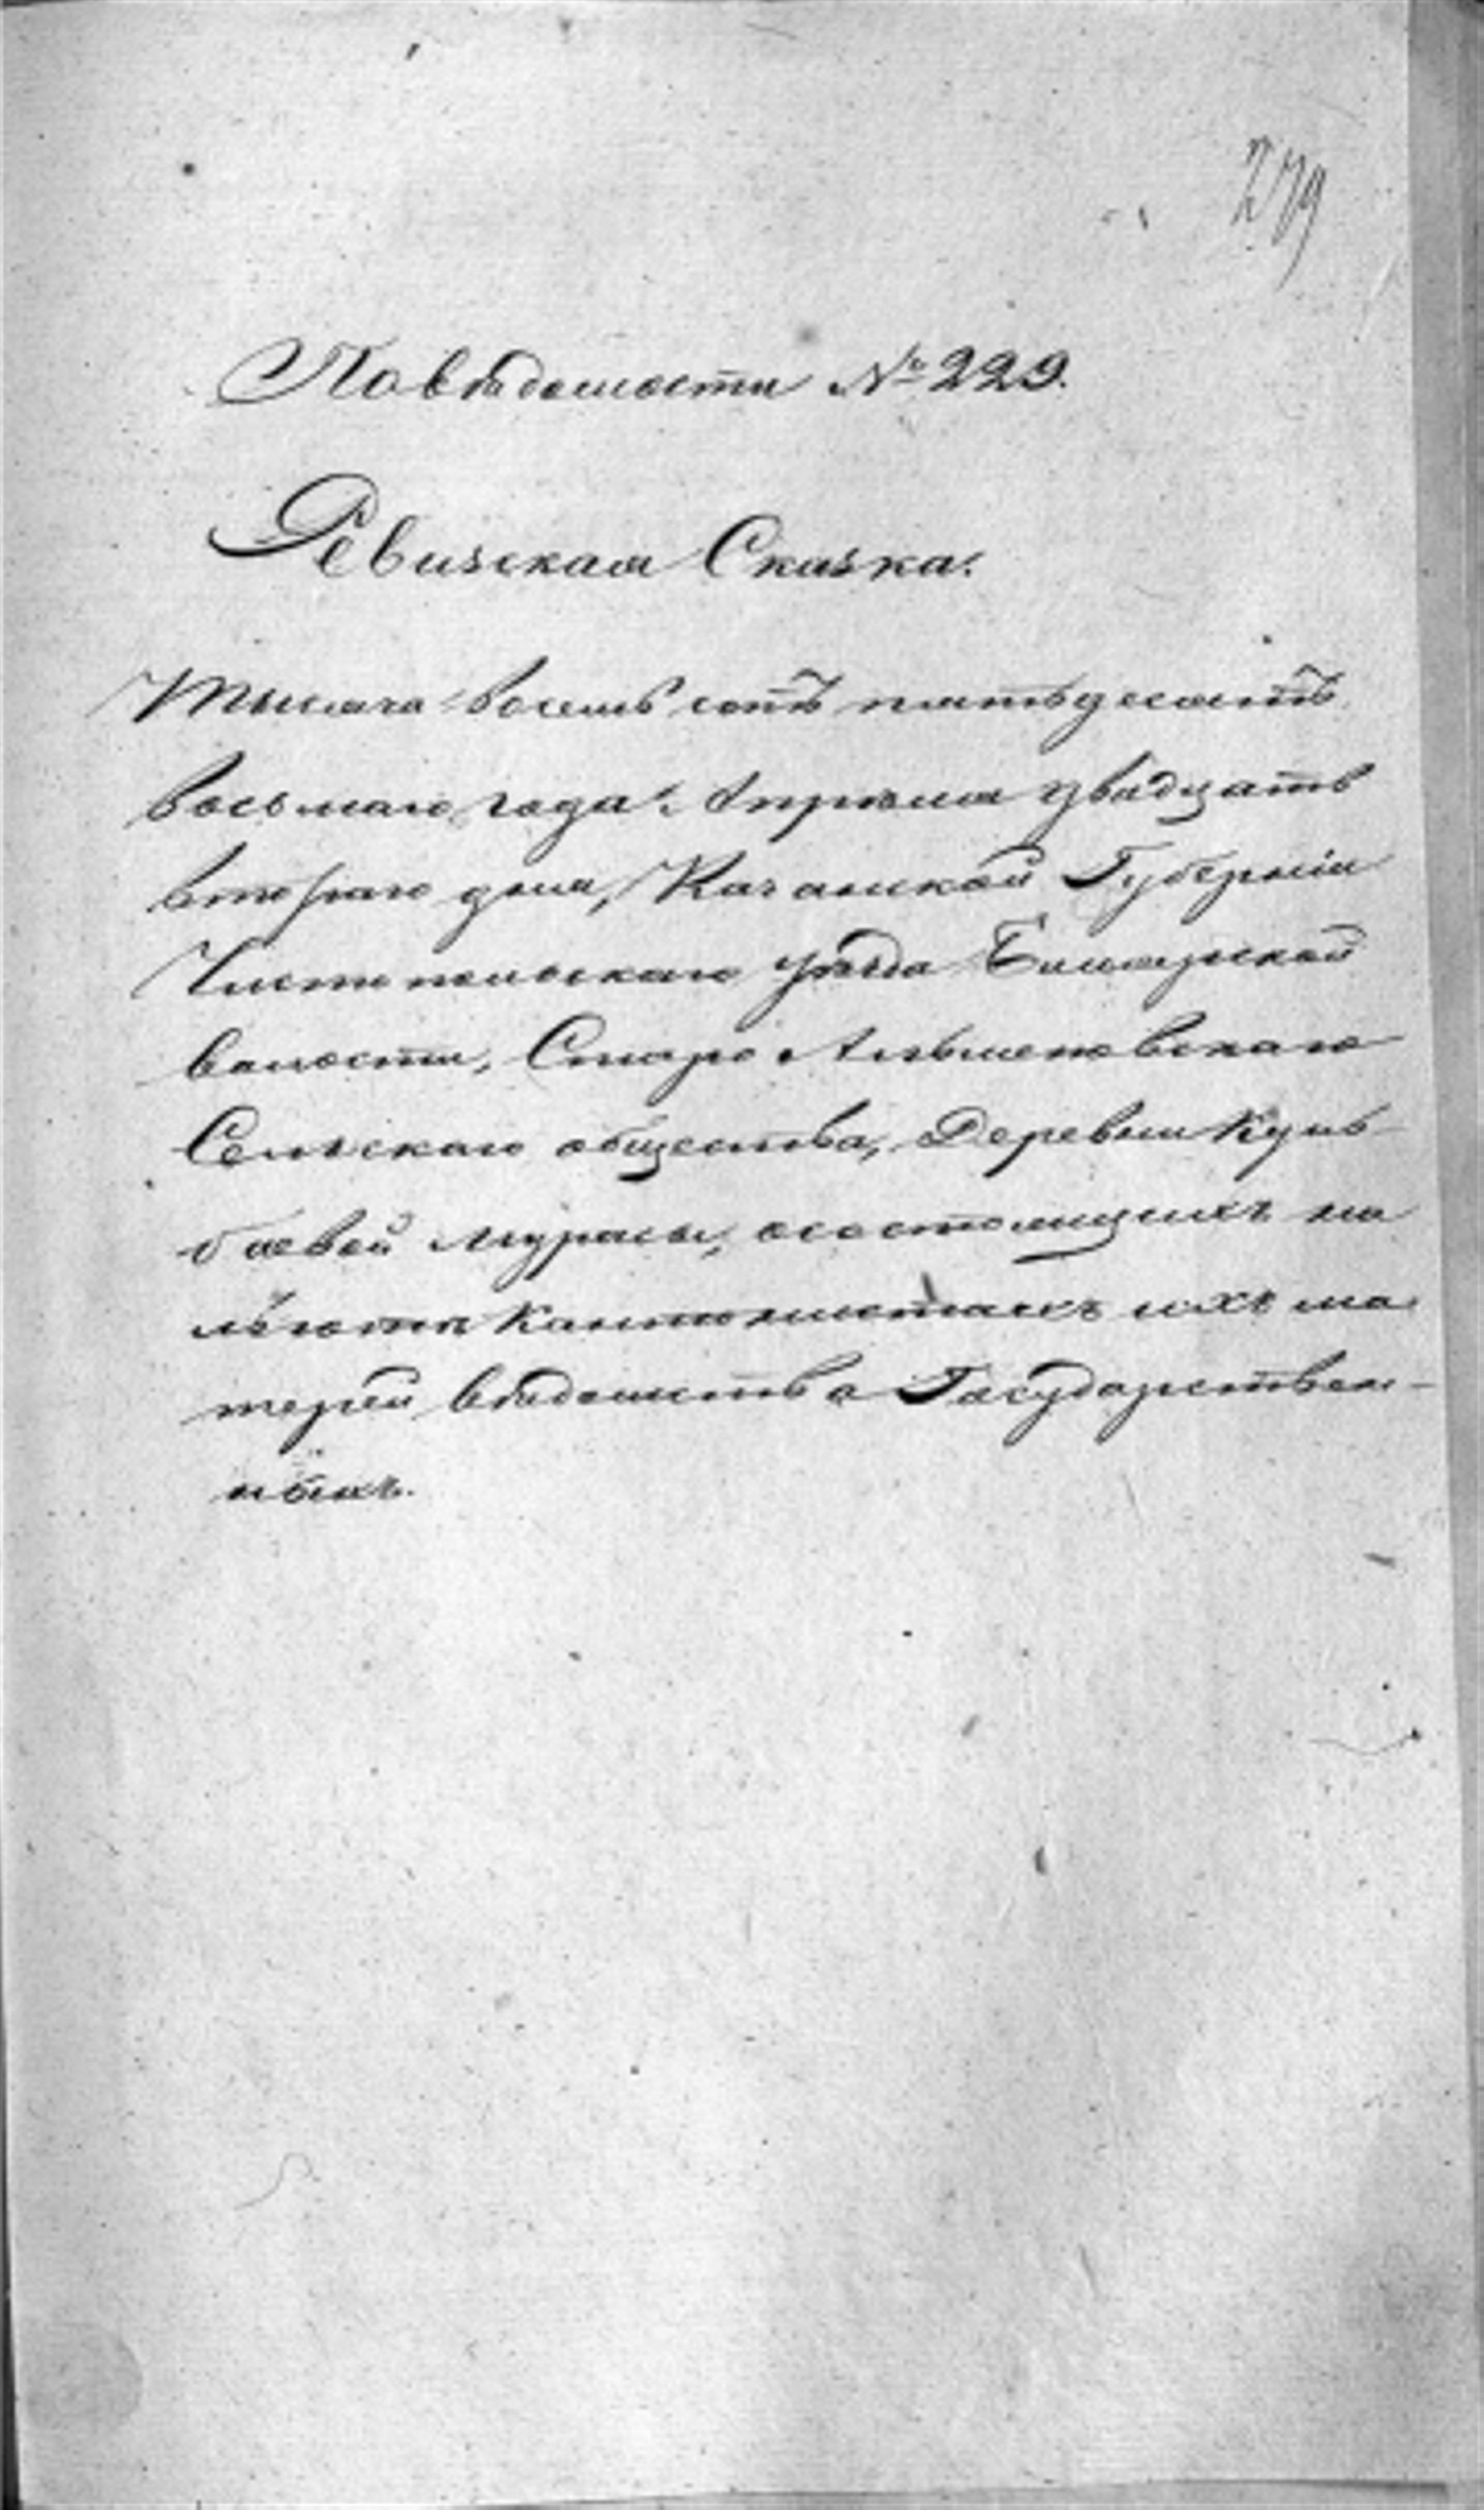 279
По вѣдомости № 229.
Ревизская Сказка.
Тысяча восемь сотъ пятьдесятъ
восьмаго года Апрѣля двадцать
втораго дня, Казанской Губерніи
Чистопольскаго уѣзда Билярской
волости, Старо Альметевскаго
Сельскаго общества, Деревни Куль
баевой Мурасы, о состоящихъ на
лѣтотъ Кантонистахъ и ихъ ма
терей вѣдомства Государствен-
ныхъ.